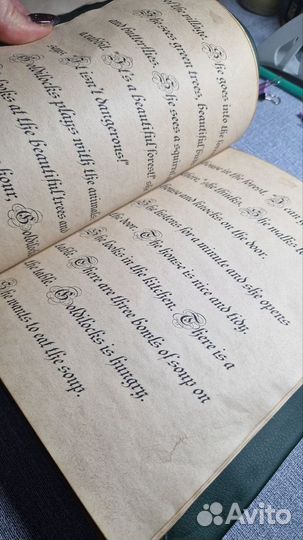 the village. She goes into the
She sees green trees, beautiful
and butterflies. She sees a squirrel
"It's a beautiful forest," she
says. "It isn't dangerous!"
Goldilocks plays with the animals
looks at the beautiful trees and
hour, Goldilocks
house in the forest. She
she thinks. She walks
house and knocks on the door.
She listens for a minute and she opens
the door. The house is nice and tidy.
She looks in the kitchen. There is a
table. There are three bowls of soup on
the table. Goldilocks is hungry.
She wants to eat the soup.
Avito